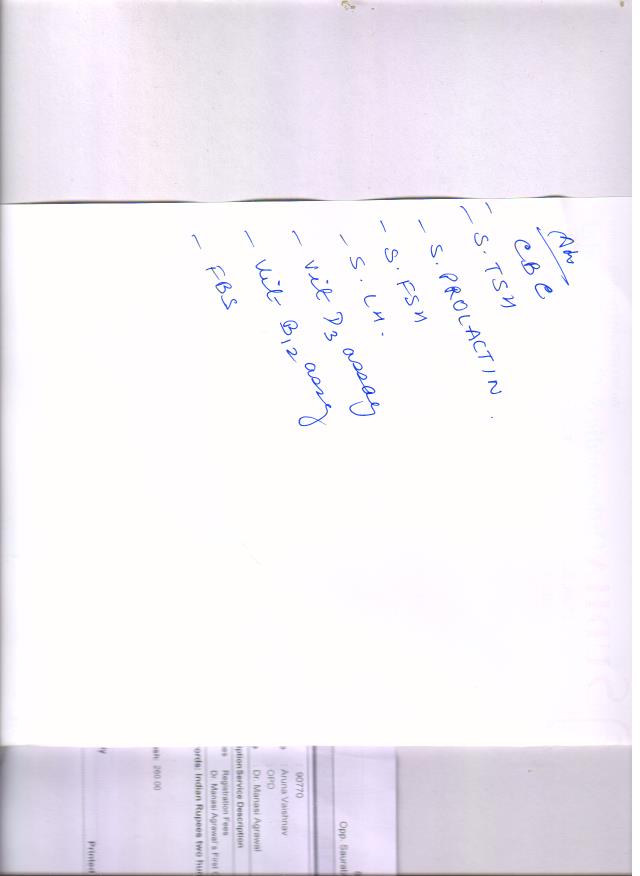 Adv
CBC
- S. TSH
- S. PROLACTIN.
- S. FSH
- S. LH.
- Vit D3 assay
- Vit B12 assay
- FBS
Opp. Saurab
: 90770
: Aruna Vaishnav
OPD
Dr. Manasi Agrawal
Service Description
Registration Fees
Dr. Manasi Agrawal's First
Indian Rupees two hu
260.00
Printed